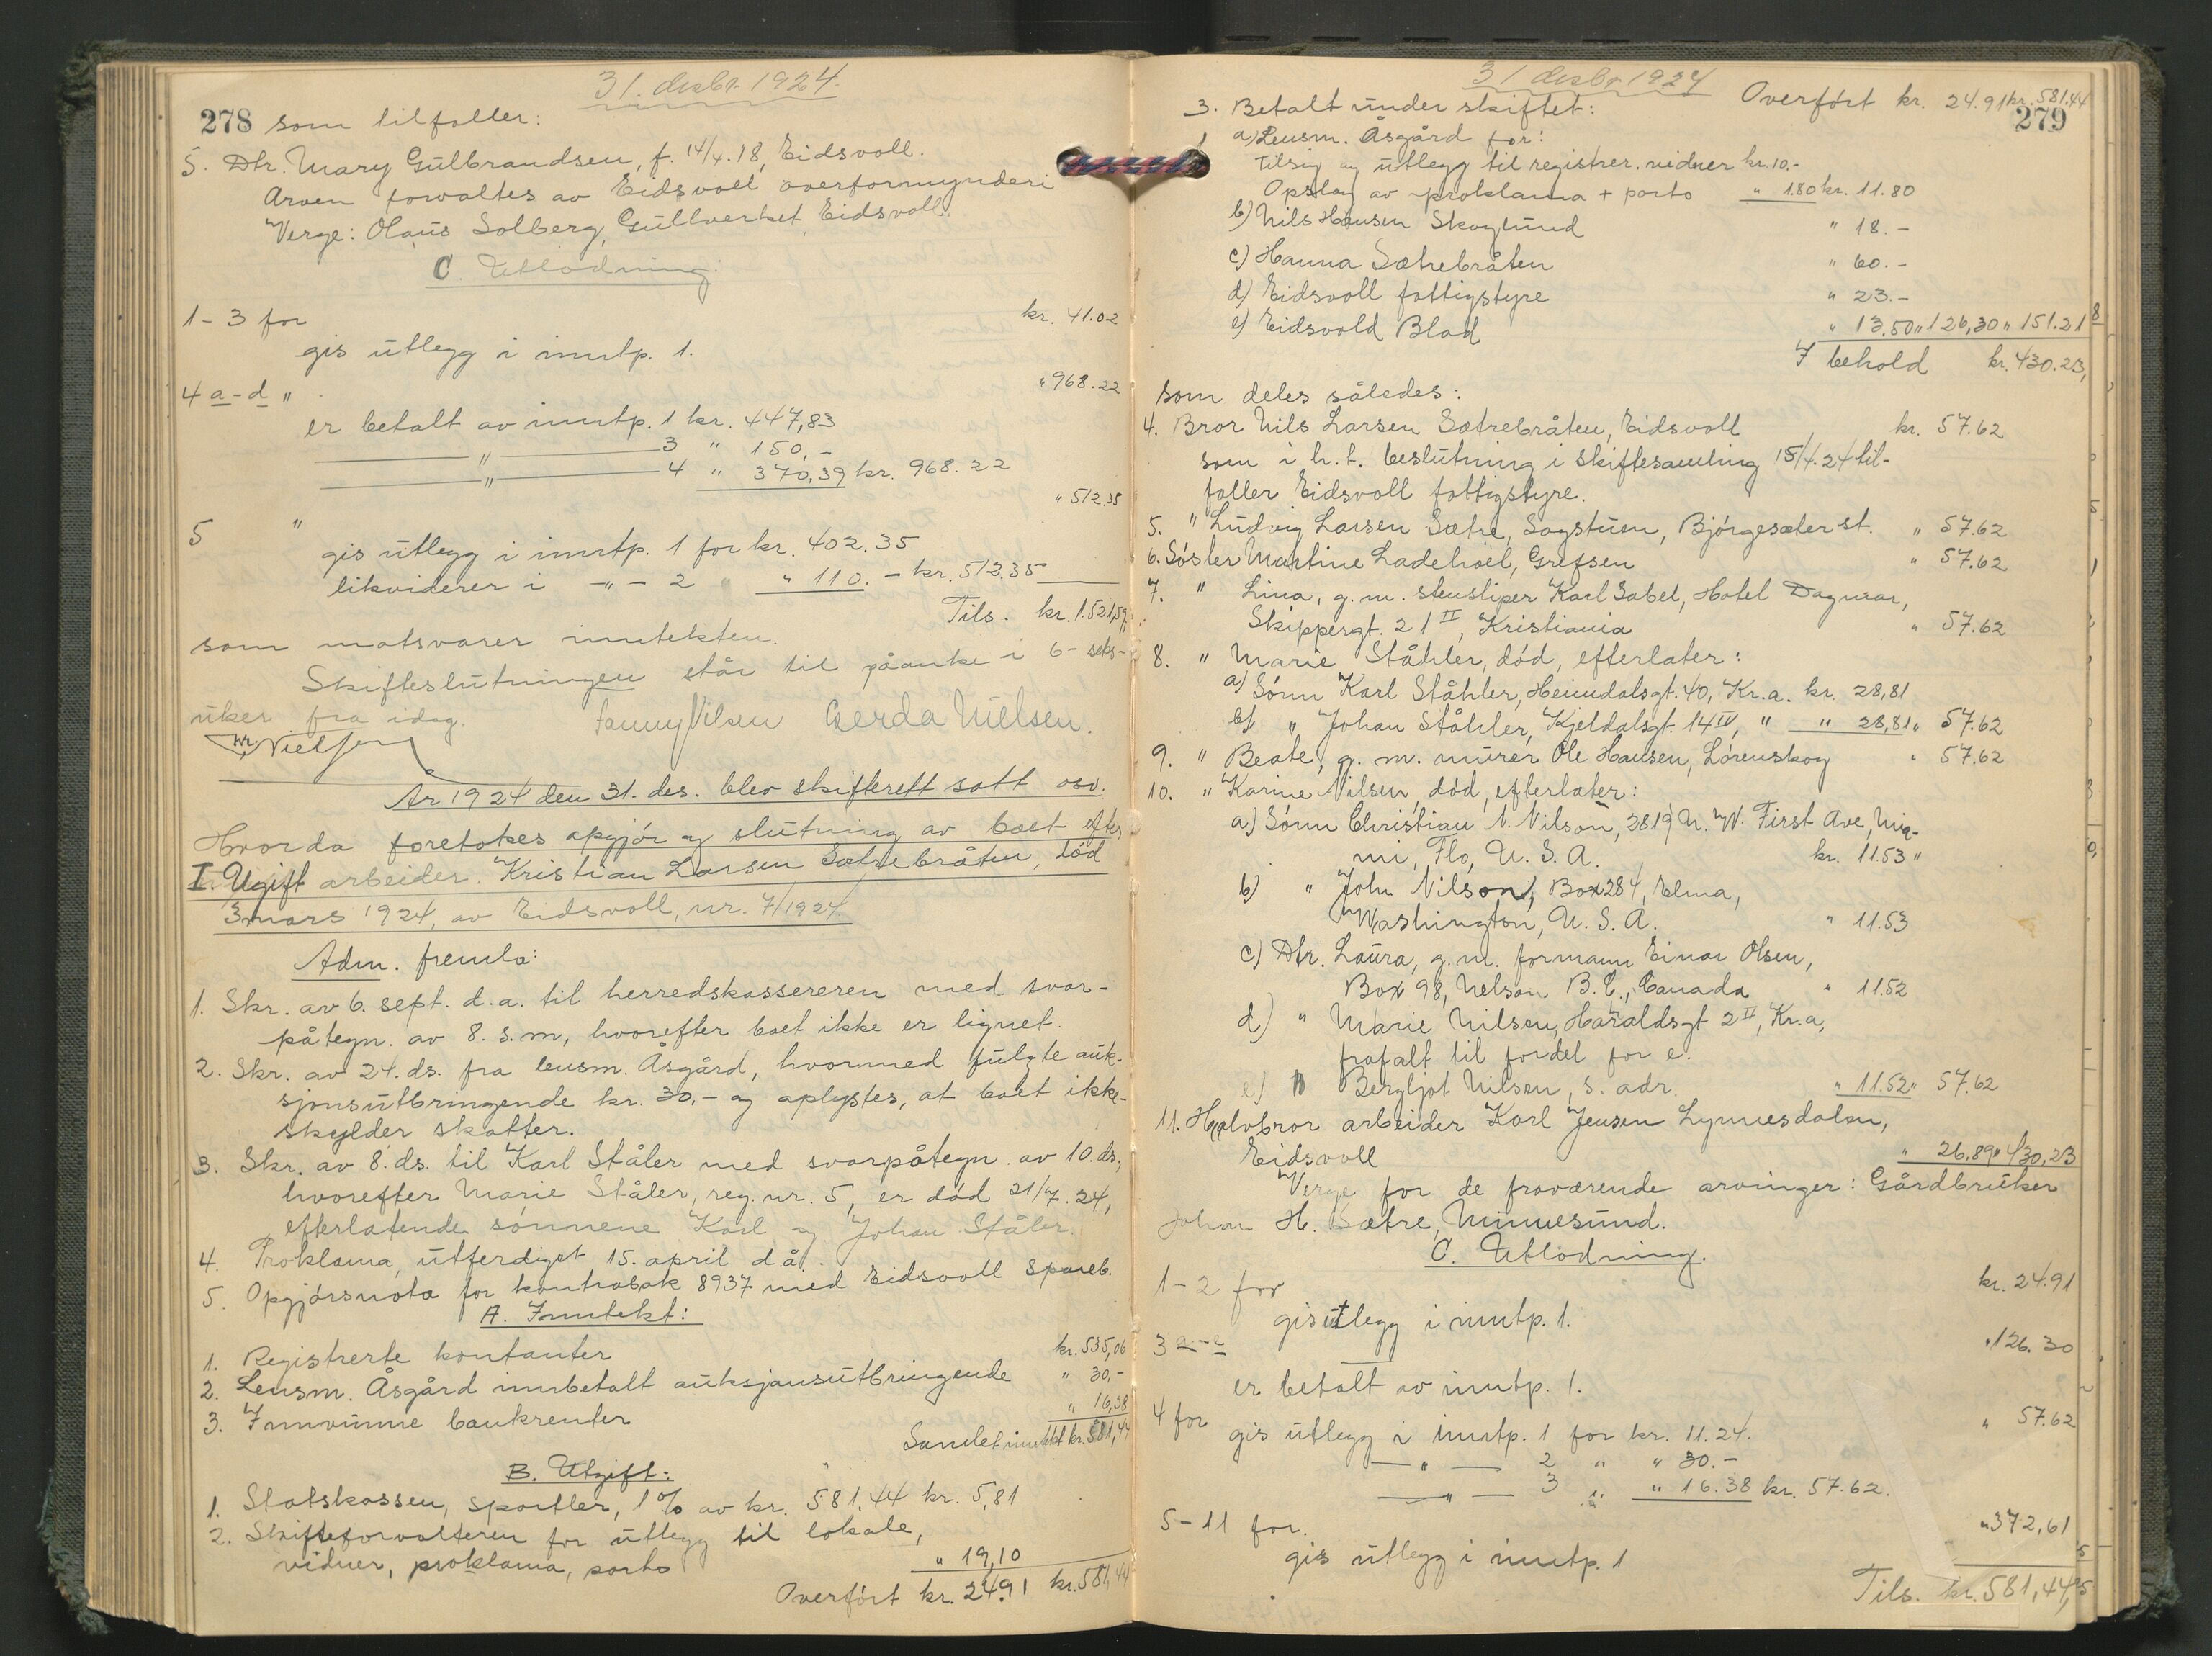 31. desbr. 1924.
278 som tilfaller:
5. Dtr. Mary Gulbrandsen, f. 14/4.18, Eidsvoll.
Arven forvaltes av Eidsvoll overformynderi
Verge: Olaus Solberg, Gullverket, Eidsvoll.
C. Utlodning:
1-3 for kr. 41.02
gis utlegg i inntp. 1.
4 a-d " " 968.22
er betalt av inntp. 1 kr. 447,83
" 3 " 150,-
" 4 " 370,39 kr. 968.22
5 " " 512.35
gis utlegg i inntp. 1 for kr. 402.35
likviderer i -"- 2 " " 110.- kr. 512.35
Tils. kr. 1.521,59
som motsvarer inntekten.
Skifteslutningen står til påanke i 6-seks-
uker fra idag. Fanny Nilsen Gerda Nielsen.
Nielsen
År 1924 den 31. des. blev skifterett satt osv.
Hvorda foretokes opgjør og slutning av boet efter
I Ugift arbeider Kristian Larsen Sætrebråten, død
3 mars 1924, av Eidsvoll, nr. 7/1924.
Adm. fremla:
1. Skr. av 6. sept. d.a. til herredskassereren med svar-
påtegn. av 8. s.m, hvorefter boet ikke er lignet.
2. Skr. av 24. ds. fra lensm. Åsgård, hvormed fulgte auk-
sjonsutbringende kr. 30,- og oplystes, at boet ikke-
skylder skatter.
3. Skr. av 8. ds. til Karl Ståler med svarpåtegn. av 10. ds.,
hvorefter Marie Ståler, reg. nr. 5, er død 21/7.24,
efterlatende sønnene Karl og Johan Ståler.
4. Proklama, utferdiget 15. april d.å.
5. Opgjørsnota for kontrabok 8937 med Eidsvoll Spareb.
A. Inntekt:
1. Registrerte kontanter kr. 535,06
2. Lensm. Åsgård innbetalt auksjonsutbringende " 30,-
3. Innvunne bankrenter " 16,38
Samlet inntekt kr. 581,44
B. Utgift:
1. Statskassen, sportler, 1% av kr. 581.44 kr. 5,81
2. Skifteforvalteren for utlegg til lokale,
vidner, proklama, porto " 19,10
Overført kr. 24.91 kr. 581,44
31 desbr. 1924
Overført kr. 24.91 kr. 581.44
279
3. Betalt under skiftet:
a) Lensm. Åsgård for:
Tilsig og utlegg til registrer. vidner kr. 10.-
Opslag av proklama + porto " 1.80 kr. 11.80
b) Nils Hansen Skoglund " 18.-
c) Hanna Sætrebråten " 60.-
d) Eidsvoll fattigstyre " 23.-
e) Eidsvold Blad " 13.50 " 126,30 " 151.21
I behold kr. 430.23,
som deles således:
4. Bror Nils Larsen Sætrebråten, Eidsvoll kr. 57.62
som i h.t. beslutning i skiftesamling 15/4.24 til-
faller Eidsvoll fattigstyre.
5. " Ludvig Larsen Sætre, Sagstuen, Bjørgesæter st. " 57.62
6. Søster Martine Ladehoel, Grefsen " 57.62
7. " Lina, g.m. stensliper Karl Sabel, Hotel Dagmar,
Skippergt. 21 II, Kristiania " 57.62
8. " Marie Ståhler, død, efterlater:
a) Sønn Karl Ståhler, Heimdalsgt. 40, Kr.a. kr. 28,81
b) " Johan Ståhler, Kjeldalsgt. 14 IV, " " 28,81 " 57.62
9. " Beate, g.m. murer Ole Hansen, Lørenskog " 57.62
10. " Karine Nilsen, død, efterlater:
a) Sønn Christian N. Nilson, 2819 N.W. First Ave, Mia-
mi, Flo, U.S.A. kr. 11.53 "
b) " John Nilson, Box 284, Elma,
Washington, U.S.A. " 11.53
c) Dtr. Laura, g.m. formann Einar Olsen,
Box 98, Nelson B.C., Canada " 11.52
d) " Marie Nilsen, Haraldsgt 2 II, Kr.a,
frafalt til fordel for e.
e) " Bergljot Nilsen, s. adr. " 11.52 " 57.62
11. Halvbror arbeider Karl Jensen Lynnesdalen,
Eidsvoll " 26.89 " 430,23
Verge for de fraværende arvinger: Gårdbruker
Johan H. Sætre, Minnesund.
C. Utlodning.
1-2 for kr. 24.91
gis utlegg i inntp. 1.
3 a-e " 126.30
er betalt av inntp. 1.
4 for " 57.62
gis utlegg i inntp. 1 for kr. 11.24.
" 2 " " 30.-
" 3 " " 16.38 kr. 57.62.
5-11 for " 372,61
gis utlegg i inntp. 1
Tils. kr. 581,44